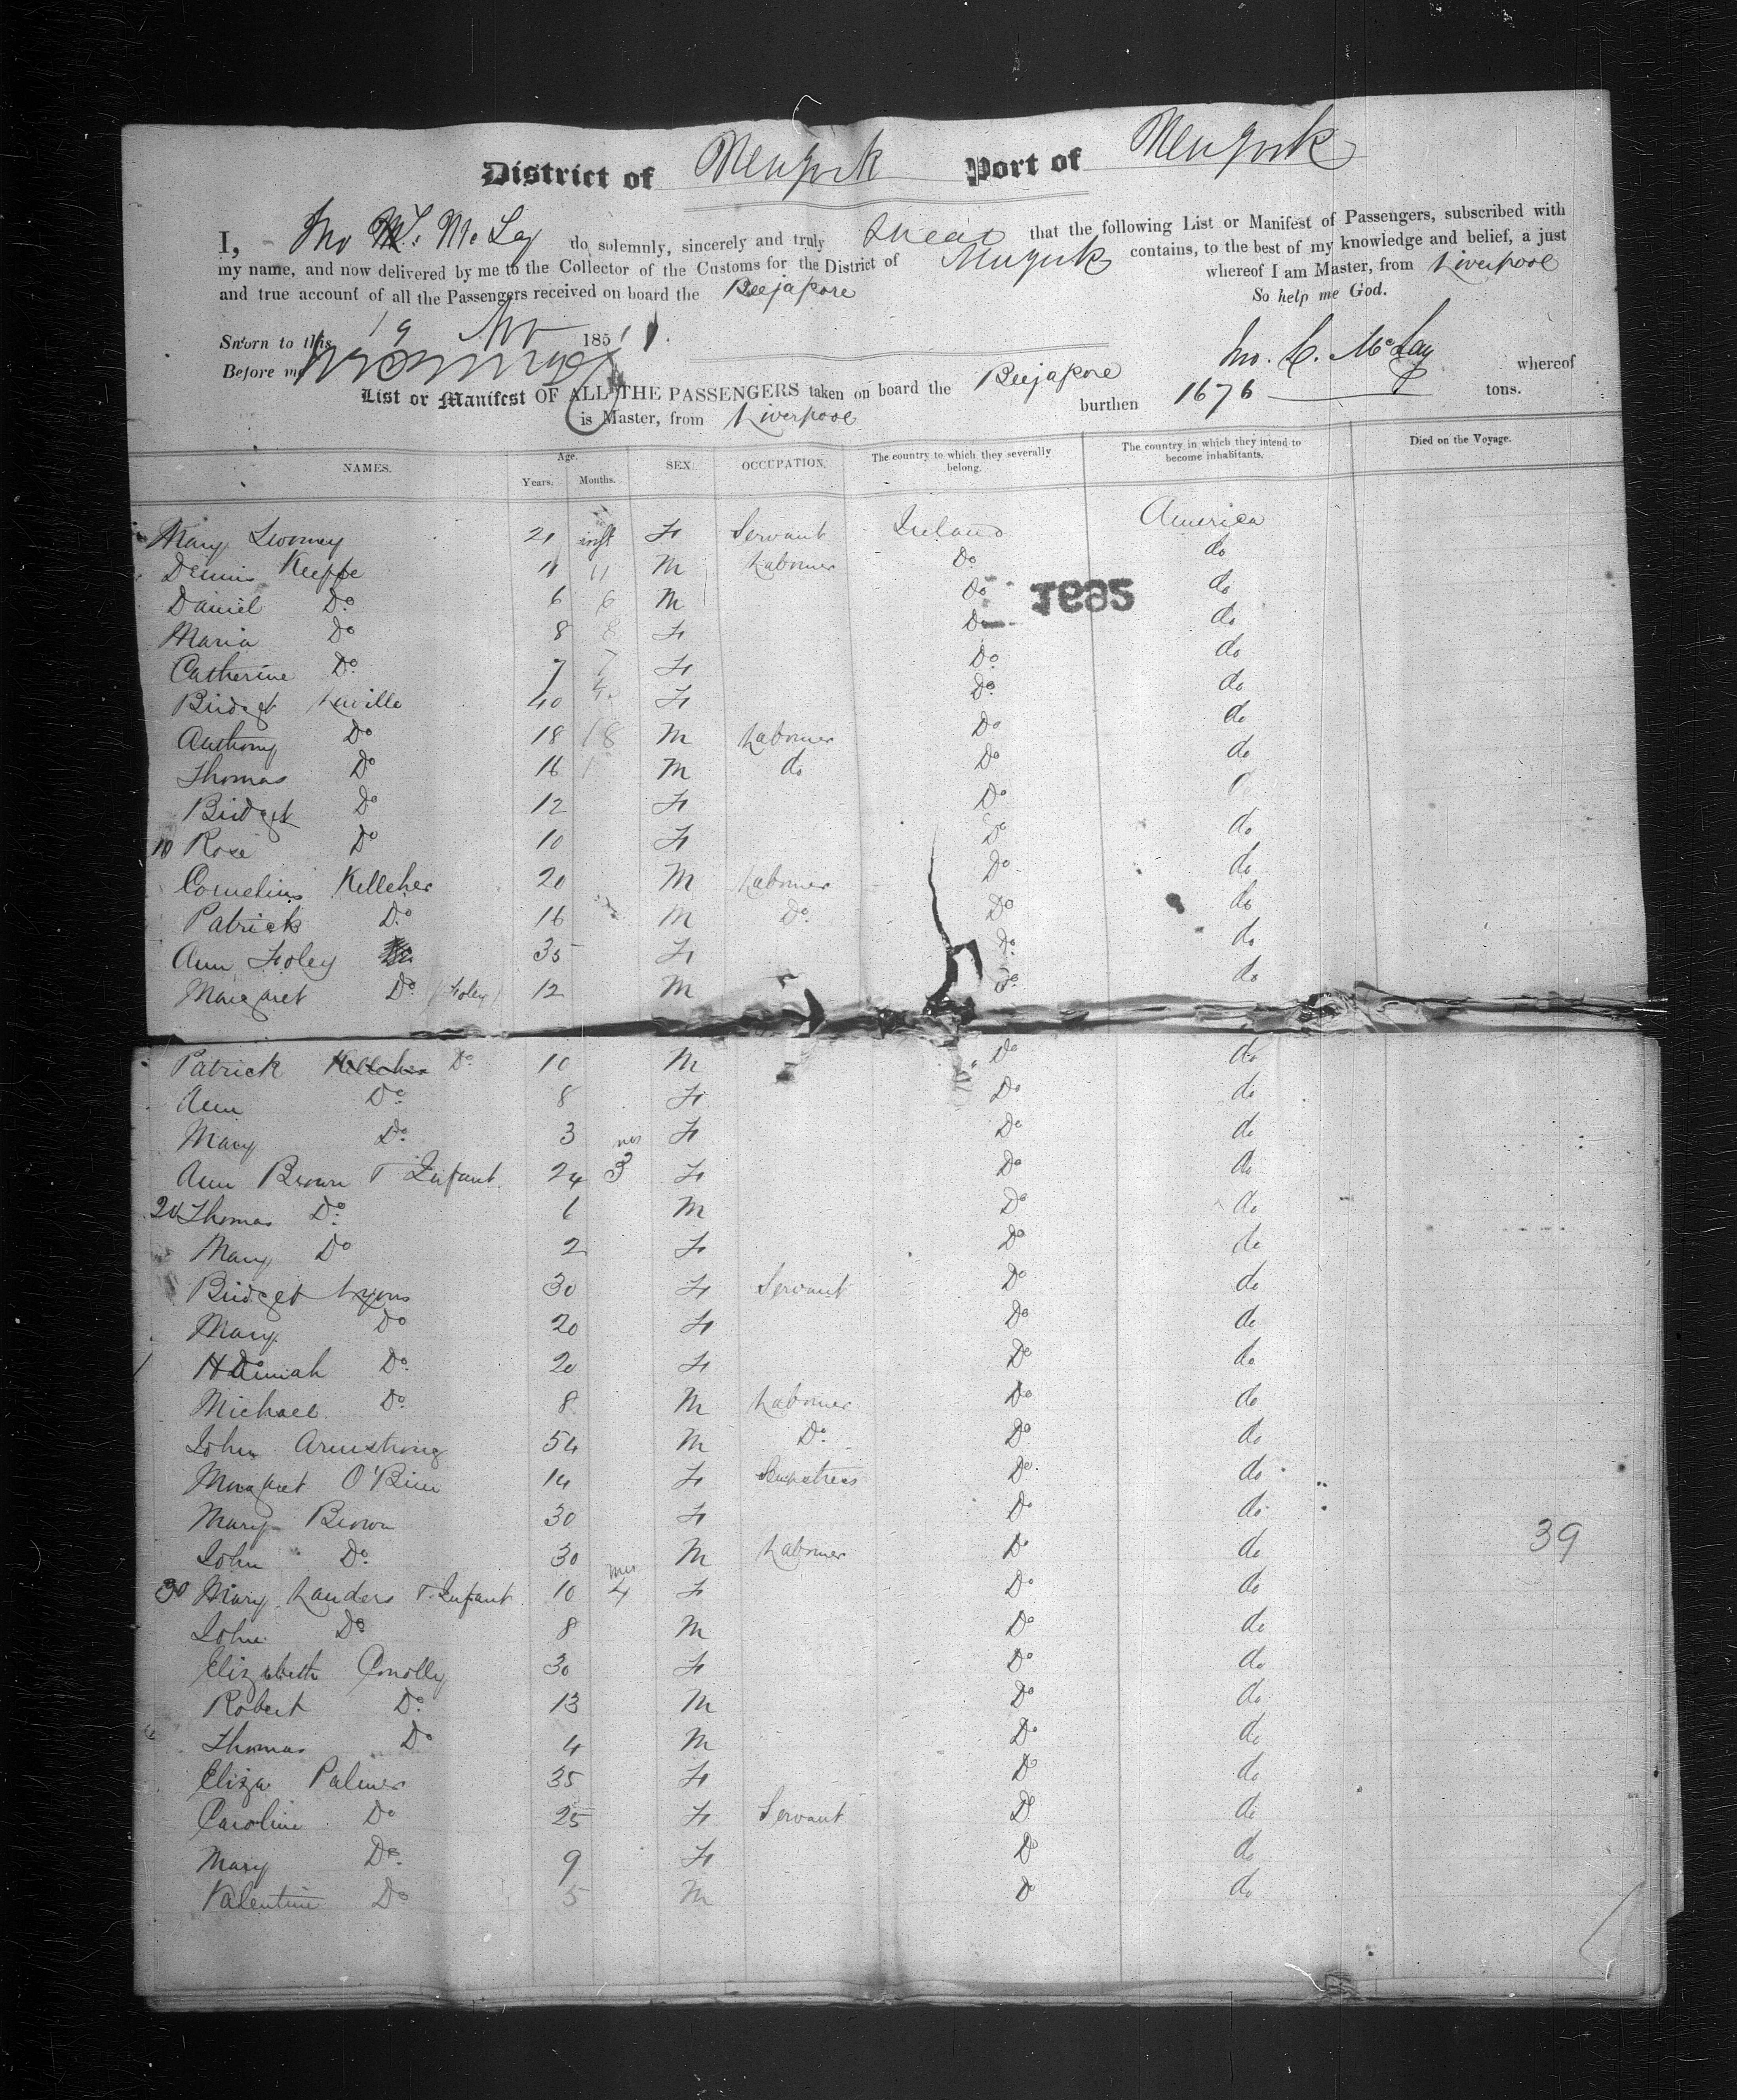 District of New York Port of New York
I, Jno L. McLay do solemnly, sincerely and truly swear that the following List or Manifest of Passengers, subscribed with
my name, and now delivered by me to the Collector of the Customs for the District of New York contains, to the best of my knowledge and belief, a just
and true account of all the Passengers received on board the Beejapore whereof I am Master, from Liverpool
So help me God.
Sworn to this 19 Nov 1851
Before me Jno. L. McLay
List or Manifest OF ALL THE PASSENGERS taken on board the Beejapore whereof
is Master, from Liverpool burthen 1676 tons.
NAMES. Age. Years. Months. SEX. OCCUPATION. The country to which they severally belong. The country in which they intend to become inhabitants. Died on the Voyage.
Mary Twomey 21 inft F Servant Ireland America
Dennis Keeffe 11 11 M Labourer Do do
Daniel Do 6 6 M Do do
Maria Do 8 8 F Do do
Catherine Do 7 7 F Do do
Bridget 40 40 F Do do
Anthony Do 18 18 M Labourer Do do
Thomas Do 16 1 M do Do do
Bridget Do 12 F Do
10 Rose Do 10 F Do do
Cornelius Kelleher 20 M Labourer Do do
Patrick Do 16 M Do Do do
Ann Foley 35 F Do do
Margaret Do (Foley) 12 M Do do
Patrick Kelleher Do 10 M Do do
Ann Do 8 F Do do
Mary Do 3 F Do do
Ann Brown & Infant 24 mos 3 F Do do
20 Thomas Do 6 M Do do
Mary Do 2 F Do do
Bridget Lyons 30 F Servant Do do
Mary Do 20 F Do do
Do 20 F Do do
Michael Do 8 M Labourer Do do
John Armstrong 54 M Do Do do
Margaret O'Brien 14 F Do do
Mary Brown 30 F Do do
John Do 30 M Labourer Do do 39
30 Mary Landers & Infant 10 mos 4 F Do do
John Do 8 M Do do
Elizabeth Conolly 30 F Do do
Robert Do 13 M Do do
Thomas Do 4 M Do do
Eliza Palmer 35 F Do do
Caroline Do 25 F Servant Do do
Mary Do 9 F Do do
Valentine Do 5 M Do do